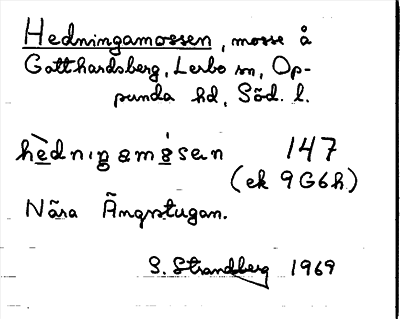 Hedningamossen, mosse å
Gotthardsberg, Lerbo sn, Op-
punda hd, Söd. l.
hèdniŋamåsen 147
(ek 9G6h)
Nära Ängstugan.
S. Strandberg 1969